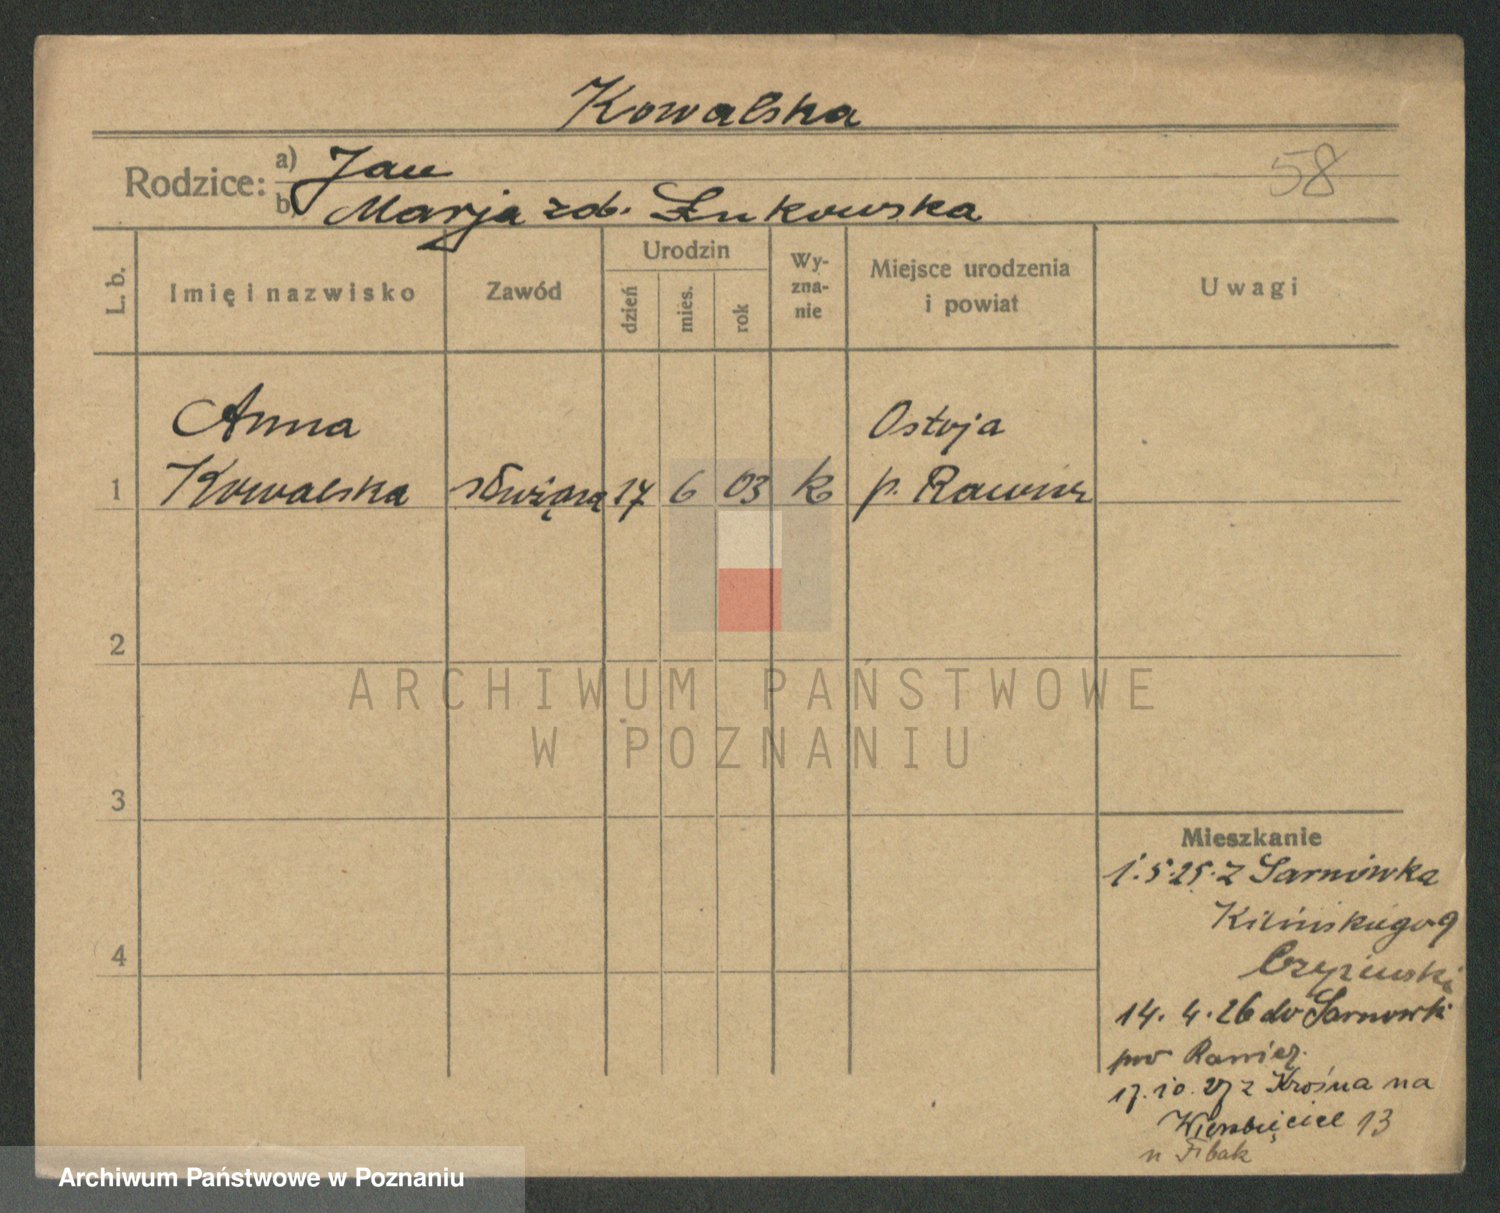 Kowalska
58
Rodzice: a) Jan
b) Marja zdb. Łukowska
L. b.
Imię i nazwisko
Zawód
Urodzin
dzień
mies.
rok
Wy-
zna-
nie
Miejsce urodzenia
i powiat
Uwagi
Anna Ostoja
1 Kowalska służąca 17 6 03 k p. Rawicz
2
3
4
ARCHIWUM PAŃSTWOWE
W POZNANIU
Mieszkanie
1.5.25. z Sarnówka
Kilińskiego 9
14. 4. 26 do Sarnowki
pow Rawicz.
17.10.27 z Krosna na
Wierzbięcice 13
u Fibak
Archiwum Państwowe w Poznaniu